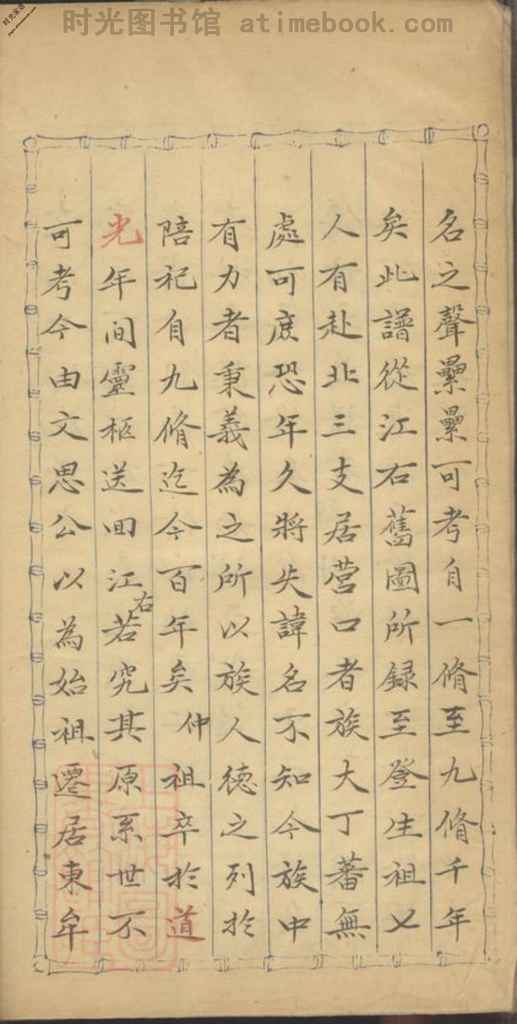 时光图书馆 atimebook.com
名之聲纍纍可考自一脩至九脩千年
矣此譜從江右舊圖所録至登生祖乂
人有赴北三支居营口者族大丁蕃無
處可庶恐年久將失諱名不知今族中
有力者秉義為之所以族人德之列於
陪祀自九脩迄今百年矣仲祖卒於道
光年间靈柩送回江右若究其原系世不
可考今由文思公以為始祖遷居東牟